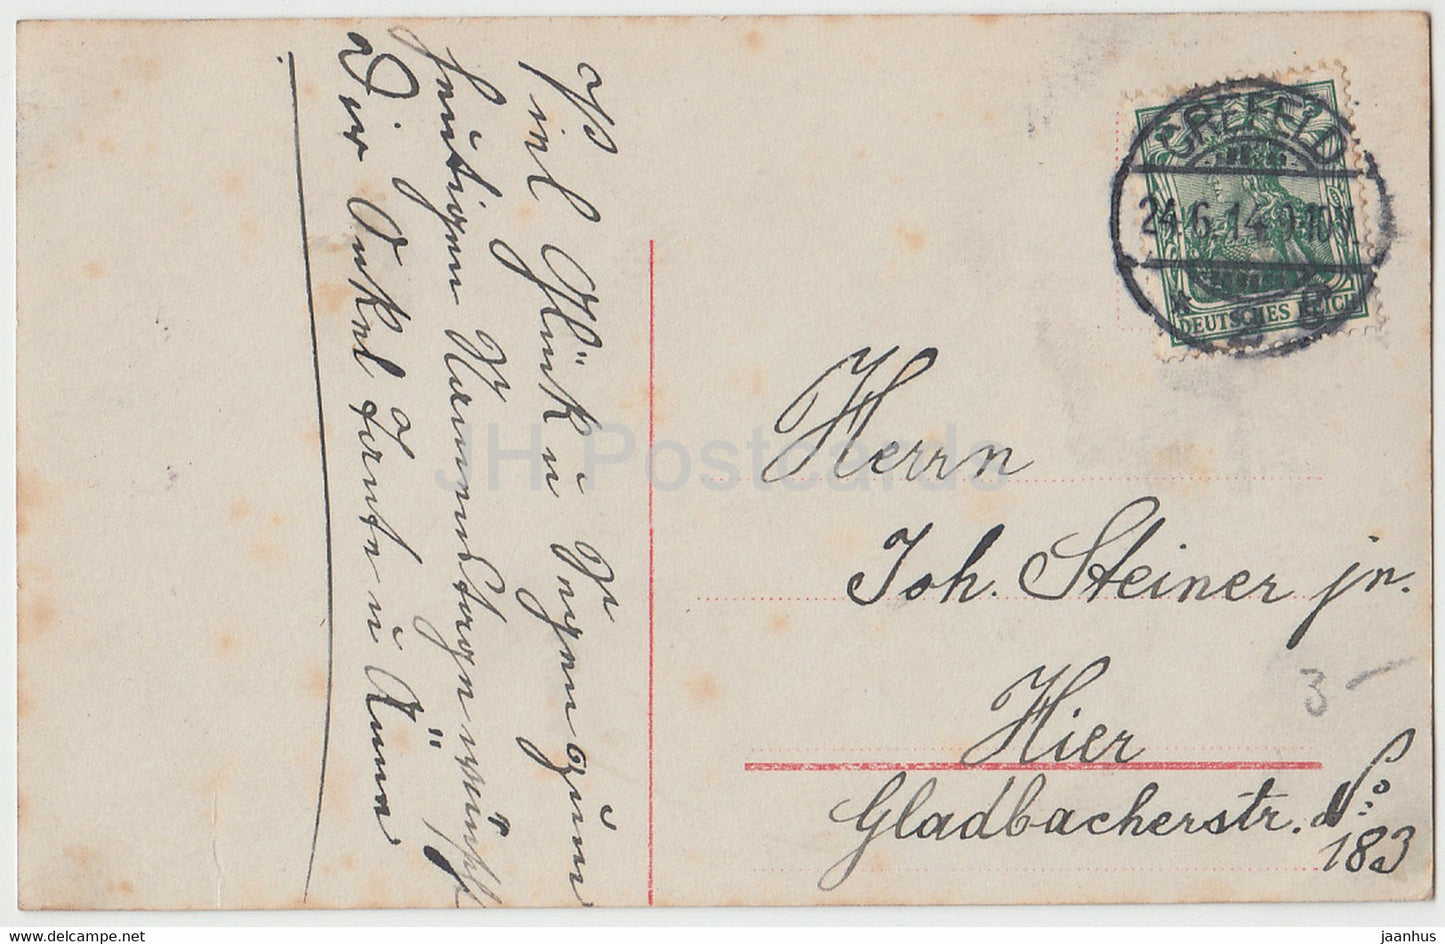 Viel Glück u Segen zum
heutigen Namenstage wünscht
Dir Onkel Tante u Anna
CREFELD
24.6.14.9-10V.
DEUTSCHES REICH
Herrn
Joh. Steiner jr.
Hier
Gladbacherstr. No
183
3-
JH Postcards
jaanhus
www.delcampe.net